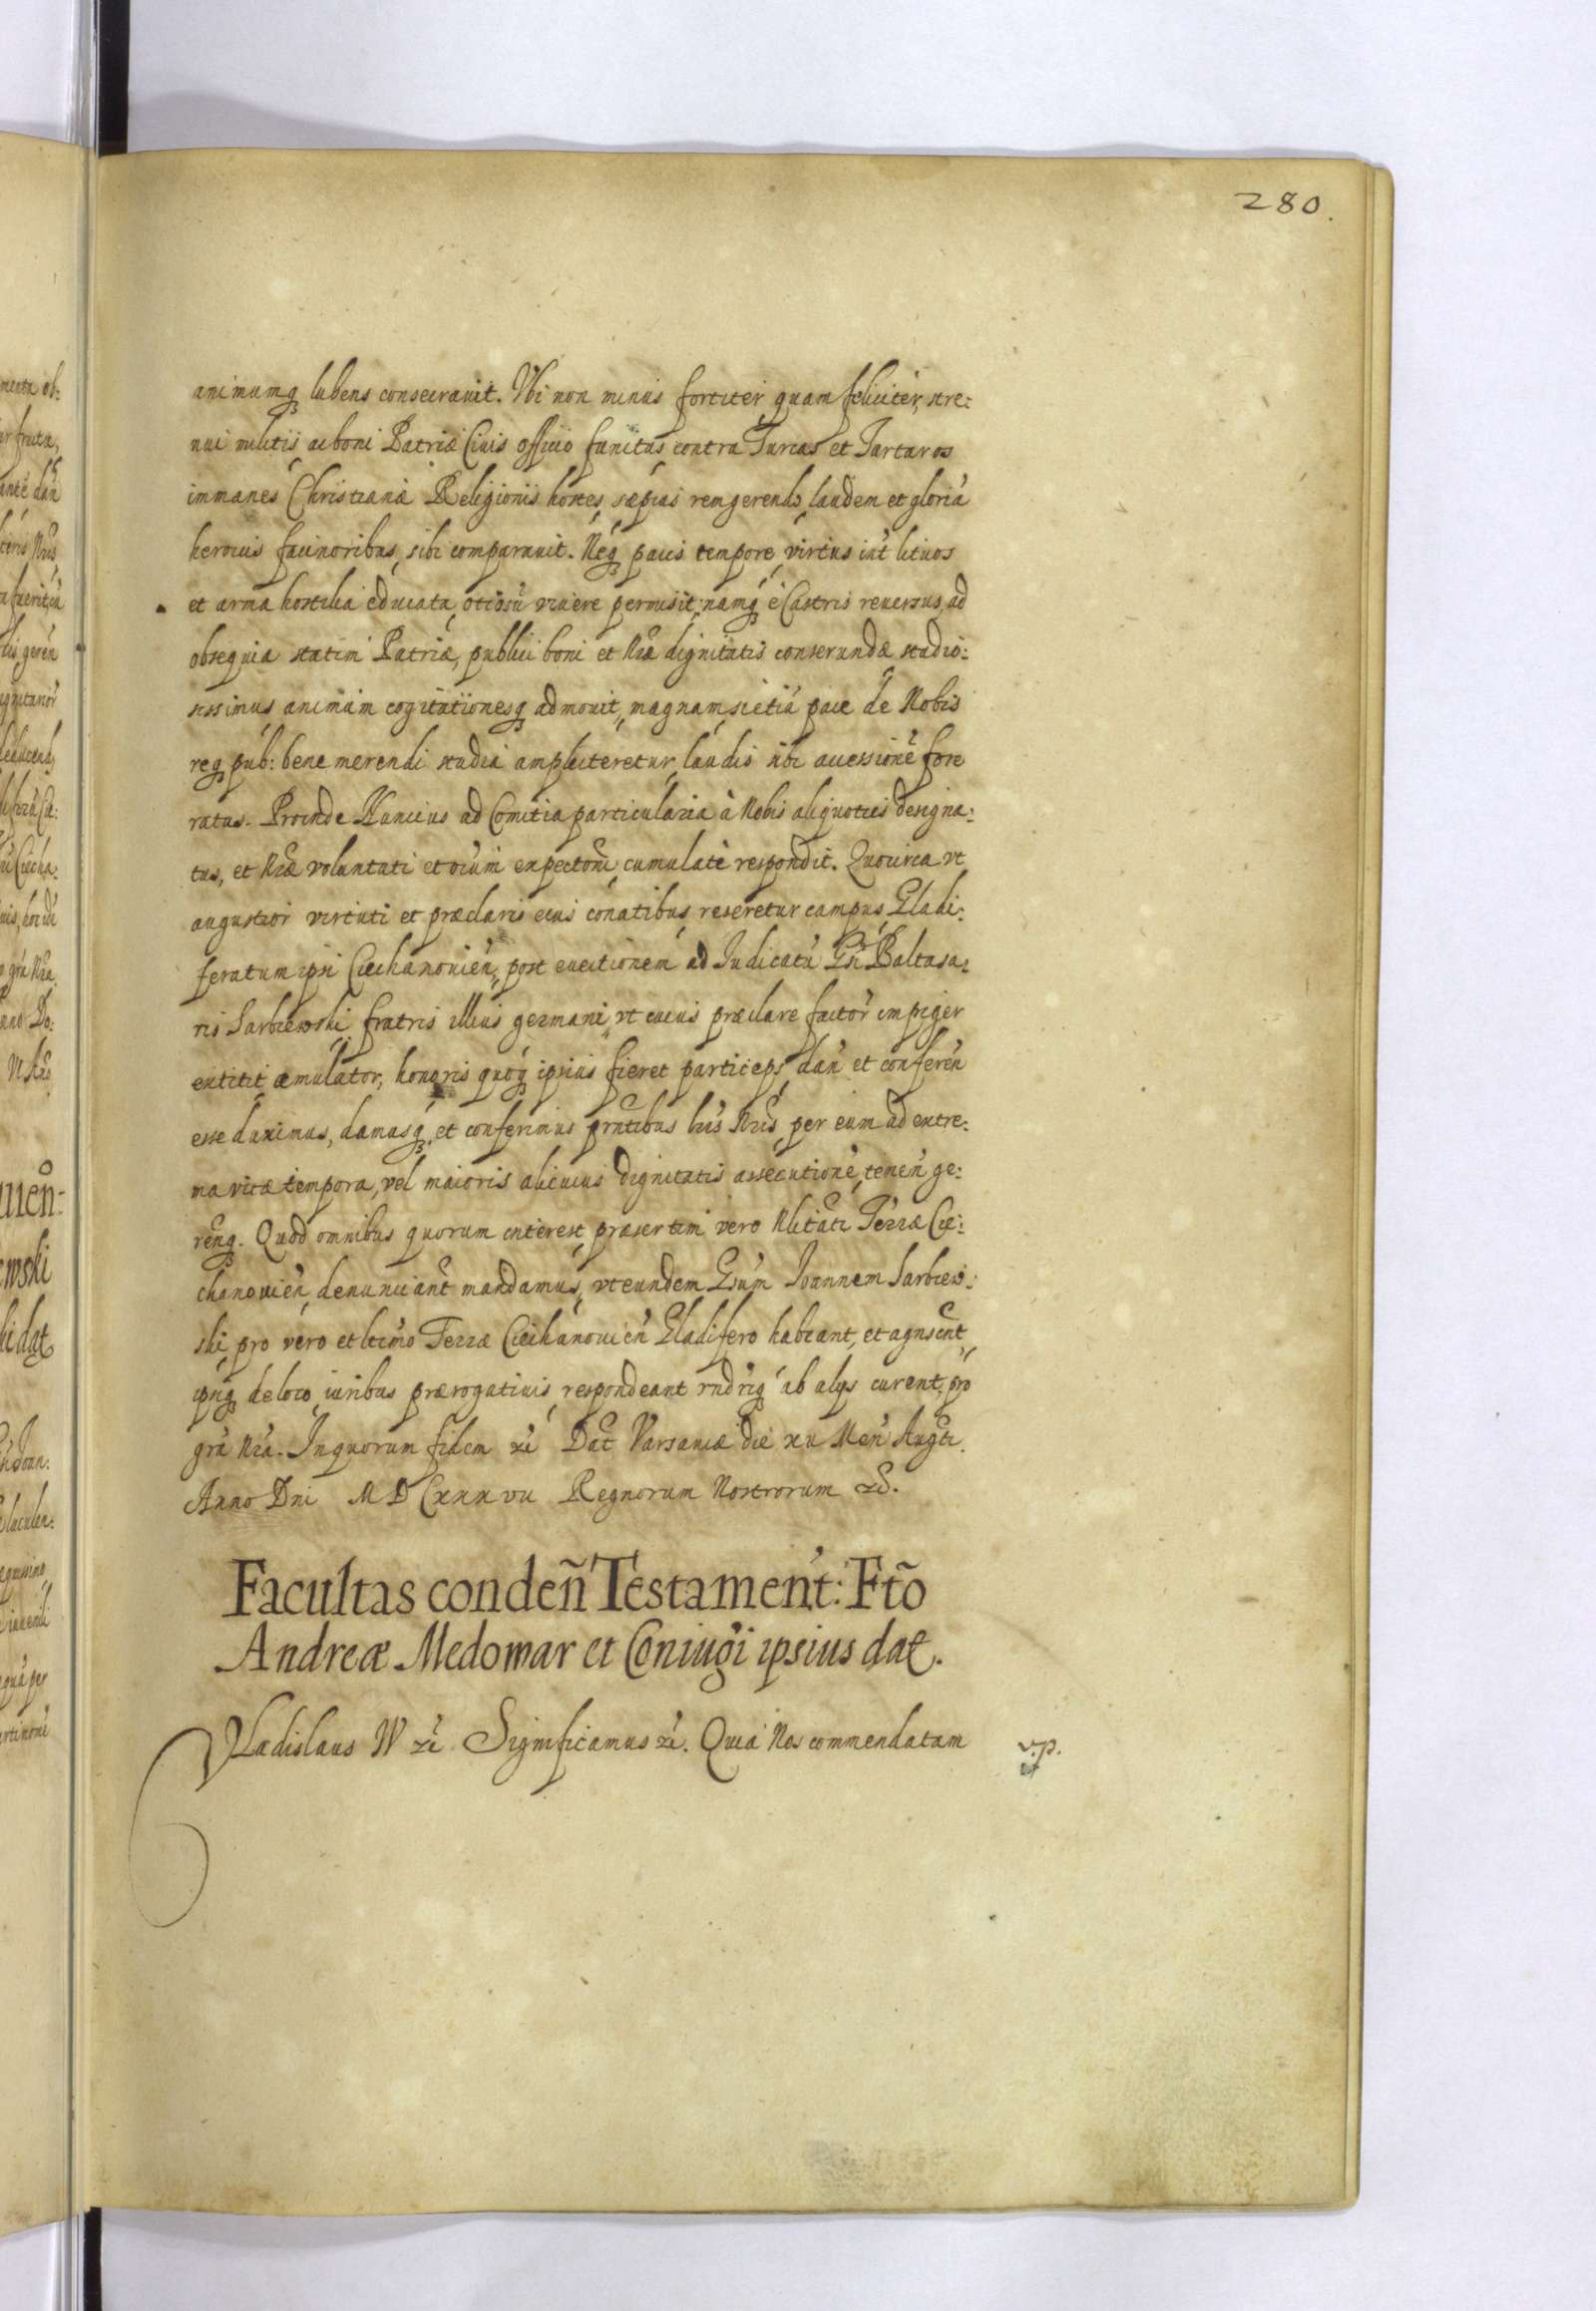 280.
animumq lubens consecravit. Vbi non minus fortiter quam feliciter, stre:
nui militis ac boni Patriæ Civis officio functus contra Turcas et Tartaros
immanes Christianæ Religionis hostes, sæpius rem gerendo, laudem et gloriã
heroicis facinoribus, sibi comparavit. Neq pacis tempore, virtus int̃ lituos
et arma hostilia educata, otiosũ vivere permisit, namq è Castris reversus, ad
obsequia statim Patriæ, publici boni et Nr̃æ dignitatis conserundæ studio:
sissimus animam cogitationesq admovit, magnam si etiã pace de Nobis
req pub: bene merendi studia amplecteretur, laudis sibi accessionẽ fore
ratus. Proinde Nuncius ad Comitia particularia à Nobis aliquoties designa:
tus, et Nr̃æ voluntati et oĩum expectõni, cumulatè respondit. Quocirca vt
augustior virtuti et præclaris eius conatibus reseretur campus, Gladi:
feratum ipsi Ciechanovieñ, post evectionem ad Iudicatũ Gsi Baltasa:
ris Sarbiewski fratris illius germani, vt cuius præclare factor̃ impiger
extitit æmulator, honoris quoq ipsius fieret particeps, dañ et confereñ
esse duximus, damusq, et conferimus pr̃ntibus lr̃is Nr̃is, per eum ad extre:
ma vitæ tempora, vel maioris alicuius dignitatis assecutionẽ, teneñ ge:
reñq. Quod omnibus quorum interest, præsertim vero Nlitati Terræ Cie:
chanovieñ, denunciant̃ mandamus, vt eundem Gsum Ioannem Sarbiew:
ski pro vero et ltimo Terræ Ciechanovieñ Gladifero habeant, et agnscent,
ipsiq de loco, iuribus prærogativis, respondeant rndriq ab alijs curent, pro
grã Nr̃a. In quorum fidem &c̃ Dat̃ Varsaviæ die XV Meñ Augti.
Anno Dni MDCXXXVII Regnorum Nostrorum &c̃.
Facultas condeñ Testament: Ftõ
Andreæ Medomar et Coniugi ipsius dat̃.
Vladislaus IV &c̃ Significamus &c̃. Quia Nos commendatam
v.p.